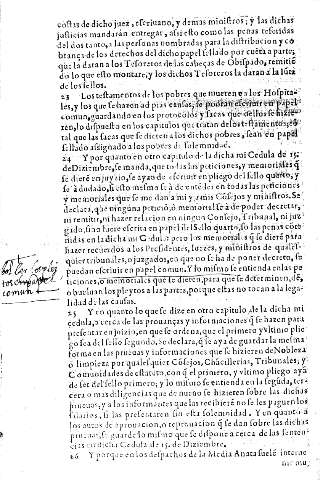 costas de dicho juez, escriuano, y demas ministros; y las dichas
justicias mandaràn entregar, assi esto como las penas referidas
del dos tanto, a las personas nombradas para la distribucion y co
brança de los derechos del dicho papel sellado por cuẽta aparte,
que la daràn a los Tesoreros de las cabeças de Obispado, remitiẽ
do lo que esto montare, y los dichos Tesoreros la daràn a la
de los sellos.
23 Los testamentos de los pobres que mueren en los Hospita-
les, y los que se hazen ad pias causas, se podran escriuir en papel
comun, guardando en los protocolos y sacas que dellos se hizie-
ren, lo dispuesto en los capitulos que tratan de los testamentos, cõ
tal que las sacas que se dieren a los dichos pobres, sean en papel
sellado assignado a los pobres de solemnidad.
24 Y por quanto en otro capitulo de la dicha mi Cedula de 15.
de Diziembre, se manda, que todas las peticiones, y memoriales q̃
se dieren en juyzio, se ayan de escriuir en pliego del sello quarto, y
se à dudado, si esto mismo se à de entẽder en todas las peticiones
y memoriales que se me dan a mi y a mis Cõsejos y ministros, Se
declara, que ninguna peticiõ, ò memorial se à de poder decretar,
ni remitir, ni hazer relacion en ningun Consejo, Tribunal, ni juz
gado, sino fuere escrita en papel del Sello quarto, so las penas cõte
nidas en la dicha mi Cedula: pero los memoriales q̃ se dieren para
hazer recuerdos a los Presidentes, Iuezes, y ministros de quales-
quier tribunales, o juzgados, en que no se ha de poner decreto, se
puedan escriuir en papel comun. Y lo mismo se entienda en las pe
ticiones, ò memoriales que se dieren, para que se determinẽ, ò
bueluan los pleytos a las partes, porque estas no tocan a la lega-
lidad de las causas.
25 Y en quanto lo que se dize en otro capitulo de la dicha mi
cedula, y acerca de las prouanças y informaciones q̃ se hazen para
presentar en juizio, en que se ordena, que el primero y vltimo plie
go sea del sello segundo, se declara, q̃ se aya de guardar la mesma
forma en las prueuas y informaciones que se hizieren de Nobleza
ò limpieza por qualesquier Cõsejos, Chãcillerias, Tribunales, y
Comunidades de estatuto, con q̃ el primero, y vltimo pliego aya
de ser del sello primero; y lo mismo se entienda en la segũda, ter-
cera o mas diligencias que de nueuo se hizieren sobre las dichas
prueuas, y a los informantes que las recibieren no se les paguen los
salarios, si las presentaren sin esta solemnidad. Y en quanto a
los autos de aprouacion, o reprouacion q̃ se dan sobre las dichas
prueuas, se guarde lo mismo que se dispone acerca de las senten
cias en dicha Cedula de 15. de Diziembre.
26 Y porque en los despachos de la Media Anata suele interue
nir mu-